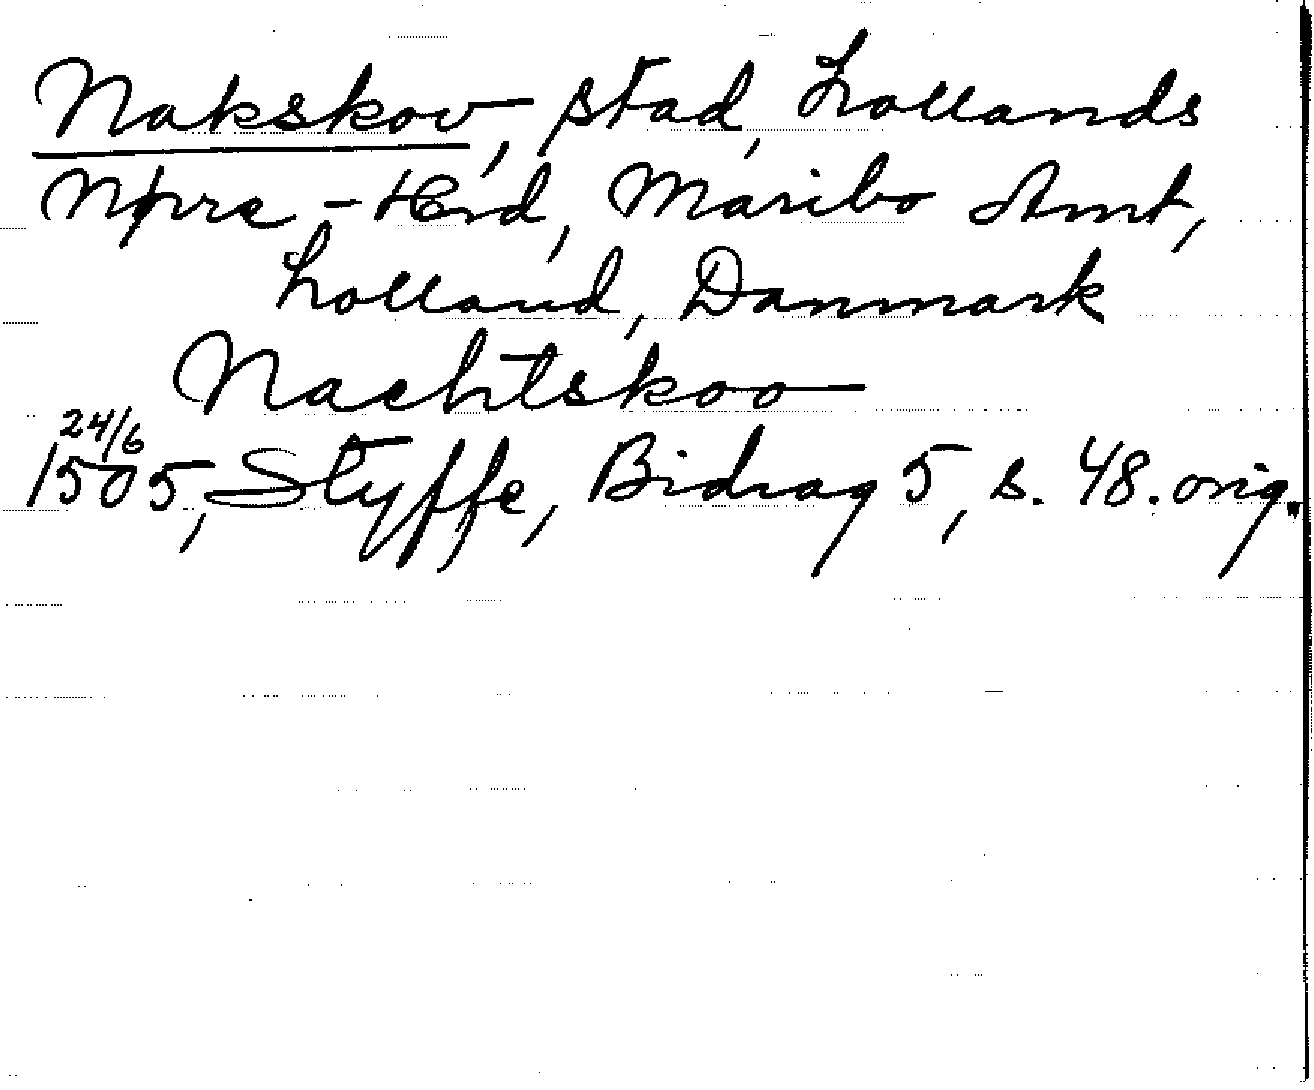 Nakskov, stad, Lollands
Nørre-Herd, Maribo Amt,
Lolland, Danmark
Nachtskoo
24/6
1505, Styffe, Bidrag 5, s. 48. orig.